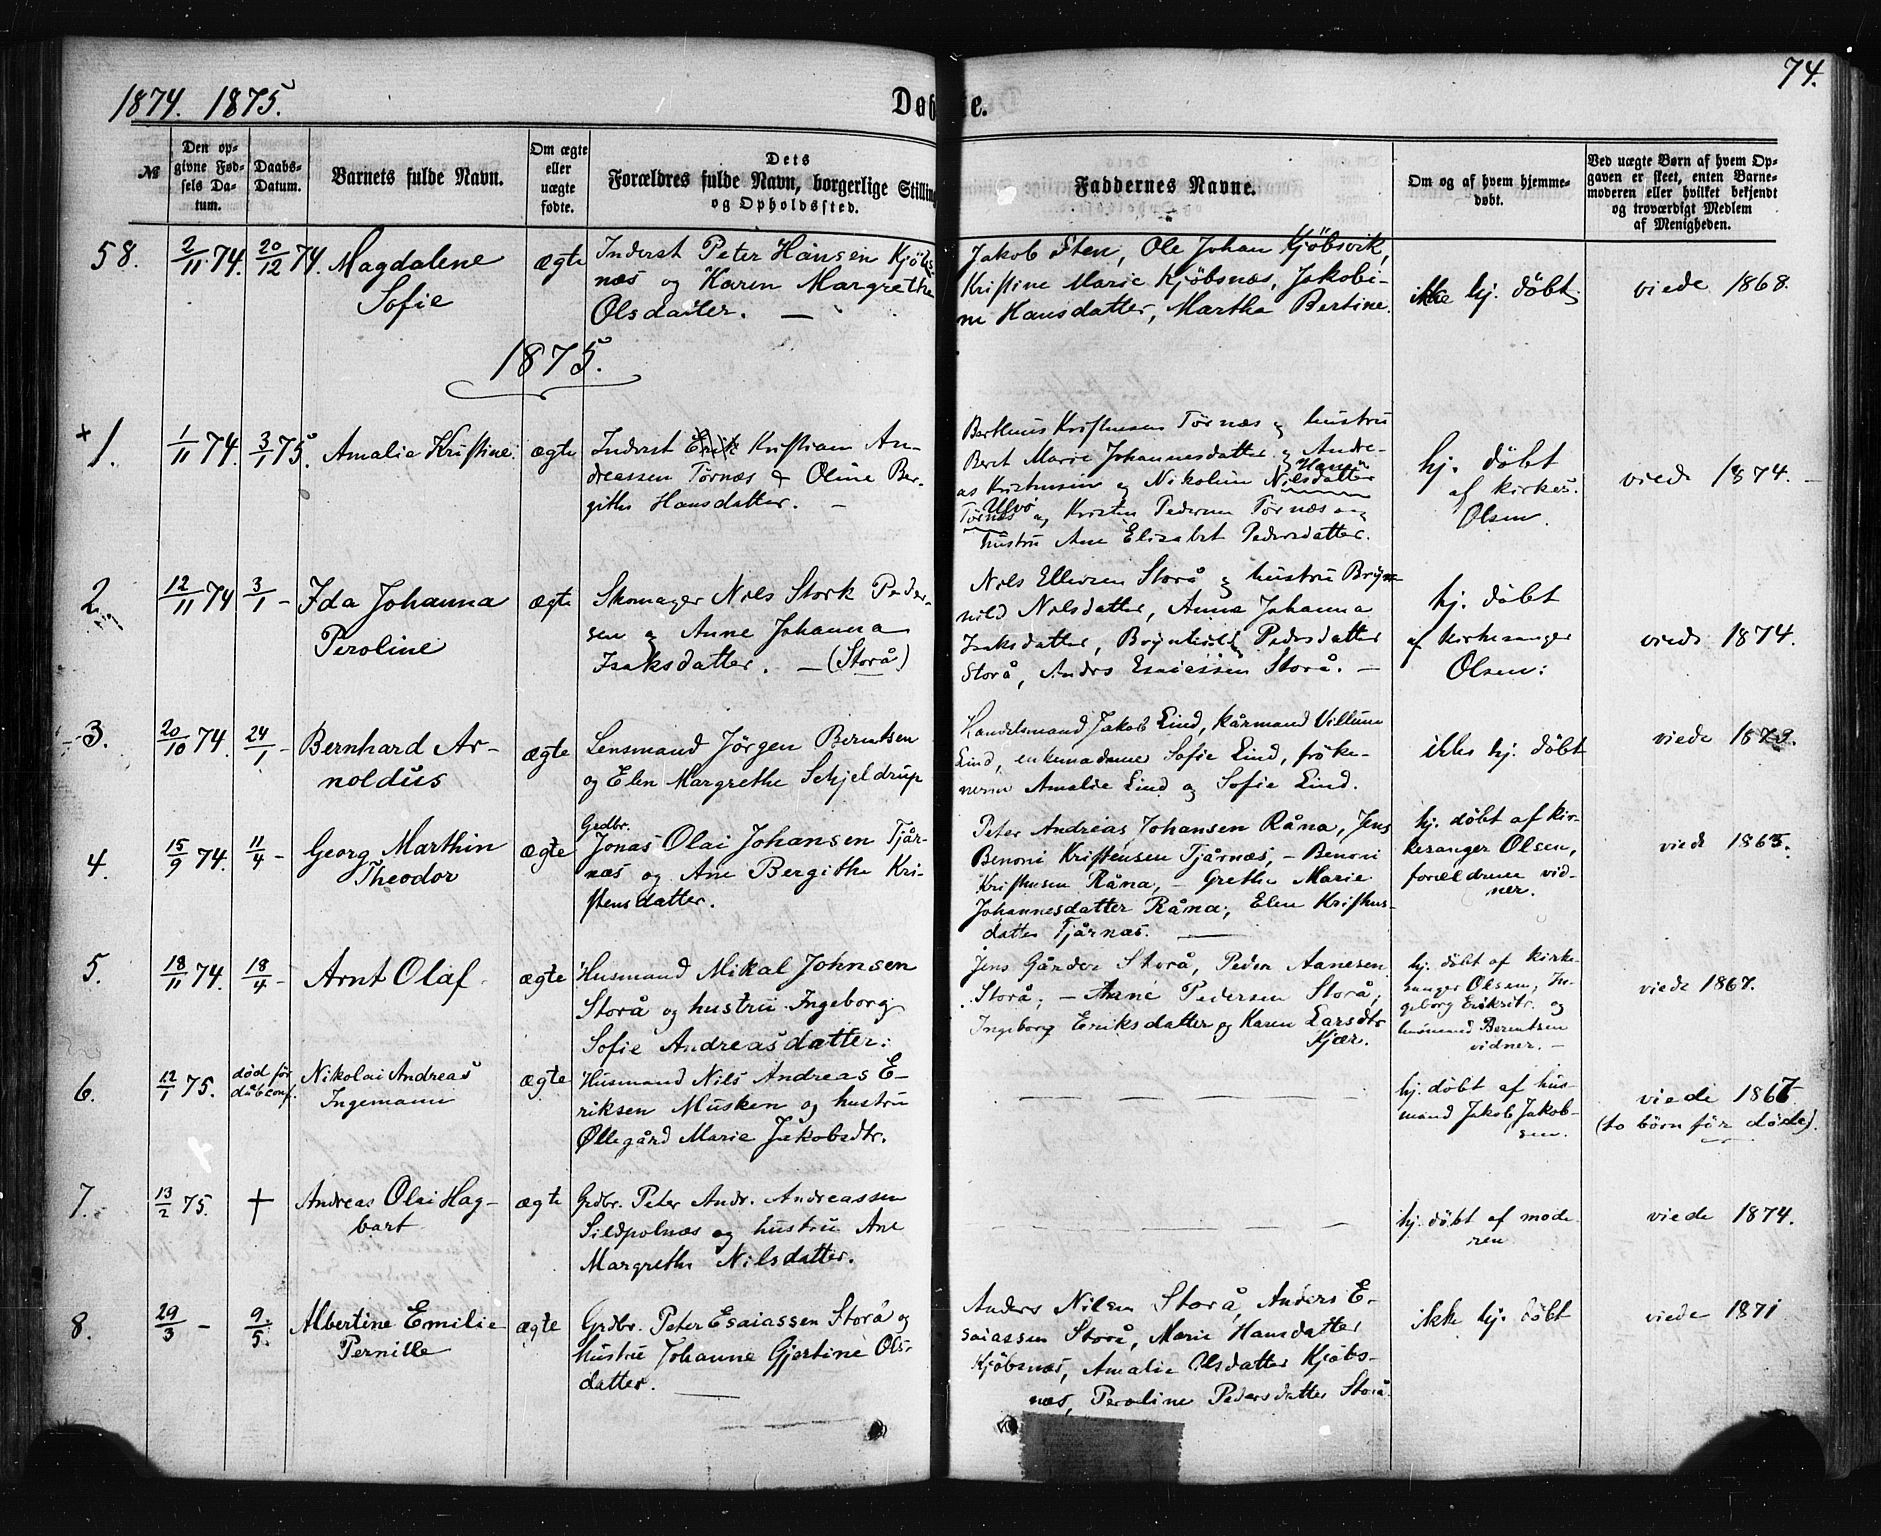 1874. 1875.
Døbte.
74.
№
Den op-
givne Fød-
sels Da-
tum.
Daabs-
Datum.
Barnets fulde Navn.
Om ægte
eller
uægte
fødte.
Dets
Forældres fulde Navn, borgerlige Stilling
og Opholdssted.
Faddernes Navne.
Om og af hvem hjemme-
døbt.
Ved uægte Børn af hvem Op-
gaven er skeet, enten Barne-
moderen eller hvilket bekjendt
og troværdigt Medlem
af Menigheden.
58. 2/11 74. 20/12 74. Magdalene
Sofie
ægte
Inderst Peter Hansen Kjöbs-
næs og Karen Margrethe
Olsdatter. —
Jakob Sten, Ole Johan Kjöbsvik,
Kristine Marie Kjöbsnæs, Jakobi-
ne Hansdatter, Martha Bertine.
ikke hj. döbt
viede 1868.
1875.
+ 1. 1/11 74. 3/1 75. Amalie Kristine.
ægte
Inderst Erik Kristian An-
dreassen Tørnæs & Oline Ber-
githe Hansdatter. —
Berthius Kristensen Tørnæs og hustru
Beret Marie Johannesdatter og Andre-
as Kristensen og Nikoline Nilsdatter
Hans
Tørnæs og Kristen Pedersen Tørnæs og
Ulvø
hustru Ane Elizabet Pedersdatter.
hj. döbt
af kirkes.
Olsen.
viede 1874. —
2. 12/11 74 3/1 — Ida Johanna
Peroline
ægte
Skomager Nils Stork Peder-
sen og Anne Johanna
Isaksdatter. — (Storå)
Nils Ellevsen Storå og hustru Bryn-
hild Nilsdatter, Anna Johanna
Isaksdatter, Brynhild Pedersdatter
Storå, Anders Esaiassen Storå. —
hj. döbt
af kirkesanger
Olsen.
viede 1874.
3. 20/10 74. 24/1 — Bernhard Ar-
noldus
ægte
Lensmand Jörgen Berntsen
og Elen Margrethe Schjeldrup
Handelsmand Jakob Lind, kårmand Villum
Lind, enkemadame Sofie Lind, fröke-
nerne Amalie Lind og Sofie Lind.
ikke hj. döbt
viede
4. 15/9 74. 11/4 — Georg Marthin
Theodor
ægte
Grdbr.
Jonas Olai Johansen Tjår-
næs og Ane Bergithe Kri-
stensdatter.
Peter Andreas Johansen Råna, Jens
Benoni Kristensen Tjårnæs, — Benoni
Kristensen Råna, — Grethe Marie
Johannesdatter Råna, Elen Kristens-
datter Tjårnæs. —
hj. döbt af kir-
kesanger Olsen,
forældrene vid-
ner.
viede 1865.
5. 18/11 74. 18/4 — Arnt Olaf
ægte
Husmand Mikal Johnsen
Storå og hustru Ingeborg
Sofie Andreasdatter.
Jens Gårder Storå, Peder Aanesen
Storå, — Aane Pedersen Storå,
Ingeborg Eriksdatter og Karen Larsdtr
Kjær.
hj. döbt af kirke-
sanger Olsen, In-
geborg Eriksdtr. og
husmand Berentsen
vidner. —
viede 1867.
6. 12/1 75. död för
dåbconf.
Nikolai Andreas
Ingemann
ægte
Husmand Nils Andreas E-
riksen Musken og hustru
Øllegård Marie Jakobsdtr.
— — — — —
hj. döbt af hus-
mand Jakob Jakob-
sen.
viede 1867
(to börn för döde).
7. 13/2 75. † Andreas Olai Hag-
bart
ægte
Grdbr. Peter Andr. Andreassen
Sildpolnæs og hustru Ane
Margrethe Nilsdatter.
— — — — —
hj. döbt af mode-
ren
viede 1874.
8. 29/3 — 9/5. Albertine Emilie
Pernille
ægte
Grdbr. Peter Esaiassen Storå og
hustru Johanne Gjertine Ols-
datter. —
Anders Nilsen Storå, Anders E-
saiassen Storå, Marie Hansdatter
Kjöbsnæs, Amalie Olsdatter Kjöbs-
næs, Peroline Pedersdatter Storå
ikke hj. döbt
viede 1871